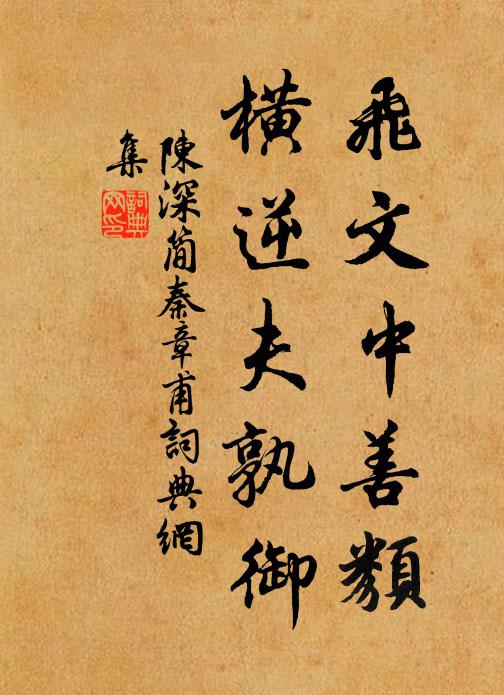 飛文中善類
橫逆夫孰御
陳深簡秦章甫詞典網
集
詞典網印